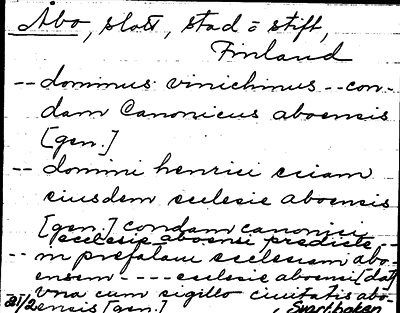 Åbo, slott, stad o stift,
Finland
-- dominus vinichinus -- con-
dam Canonicus aboensis
[gen.]
-- domini henrici eciam
eiusdem eclesie aboensis
[gen.] condam canonici
ecclesie aboensi predicte --
-- m prefatam ecclesiam abo-
ensem ---- eclesie aboensi [dat]
vna cum sigillo ciuitatis abo-
ensis [gen.] Svartboken